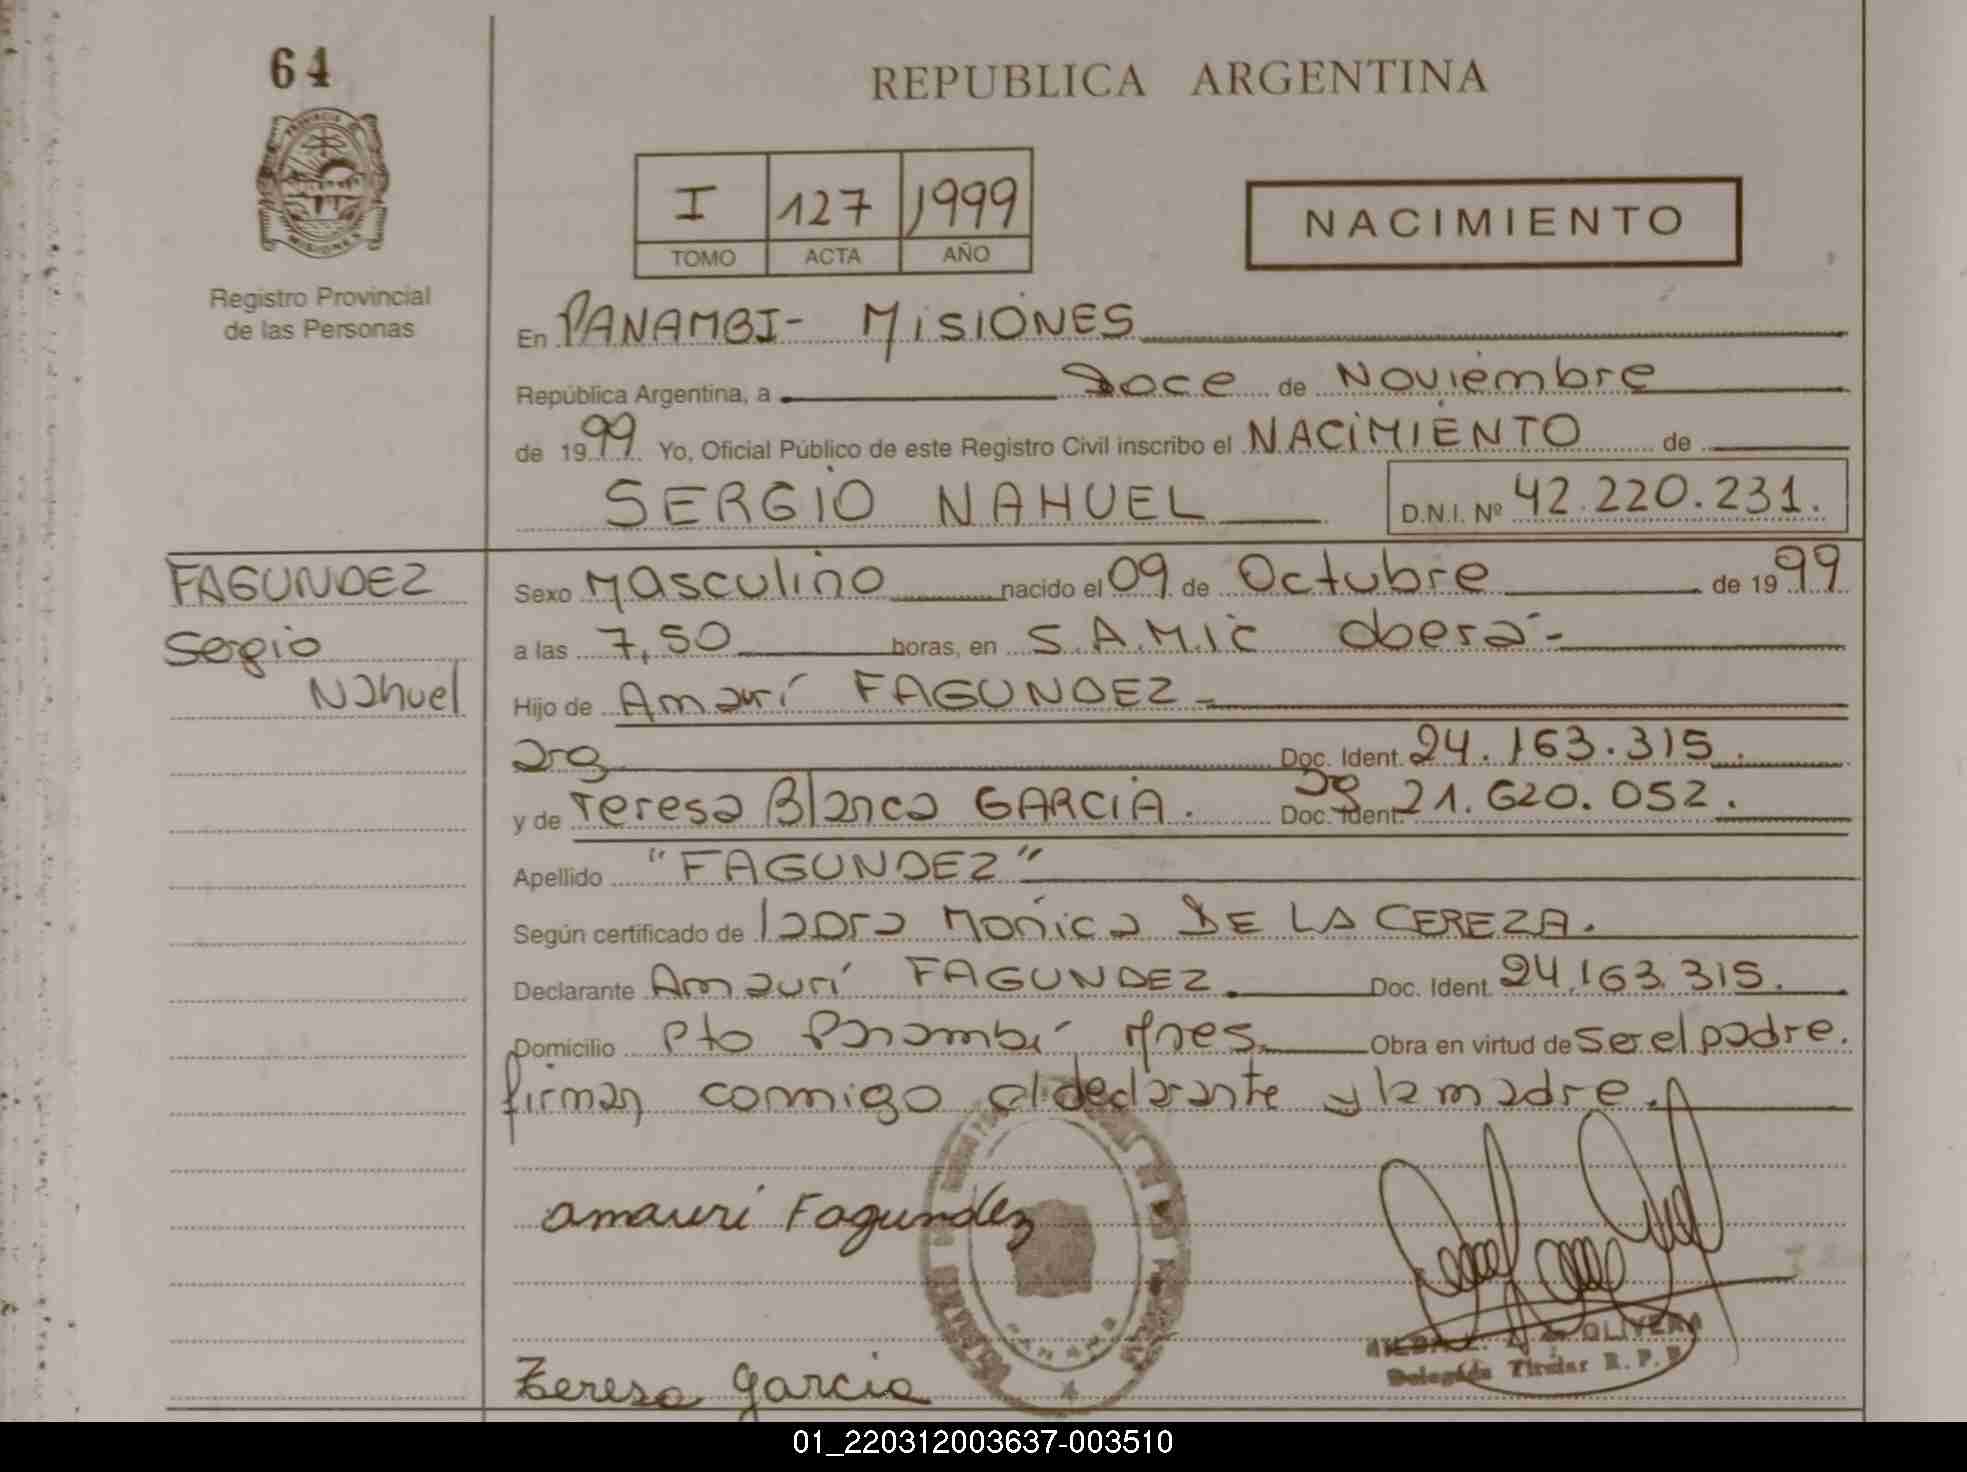 64
REPUBLICA ARGENTINA
PROVINCIA
MISIONES
Registro Provincial
de las Personas
I 127 1999
TOMO ACTA AÑO
NACIMIENTO
En PANAMBI- MISIONES
República Argentina, a Doce de Noviembre
de 1999 Yo, Oficial Público de este Registro Civil inscribo el NACIMIENTO de
SERGIO NAHUEL D.N.I. Nº 42.220.231.
FAGUNDEZ
Sergio
Nahuel
Sexo Masculino nacido el 09 de Octubre de 1999
a las 7,50 horas, en S.A.M.I.C Oberá-
Hijo de Amauri FAGUNDEZ-
arg Doc. Ident. 24.163.315.
y de Teresa Blanca GARCIA. arg Doc. Ident. 21.620.052.
Apellido "FAGUNDEZ"
Según certificado de Monica DE LA CEREZA.
Declarante Amauri FAGUNDEZ. Doc. Ident. 24.163.315.
Domicilio Pto Panambí Mnes. Obra en virtud de ser el padre.
firman conmigo el declarante y la madre.
amauri Fagundez
OLIVERA
Delegada Titular R. P. P.
Teresa Garcia
01_220312003637-003510